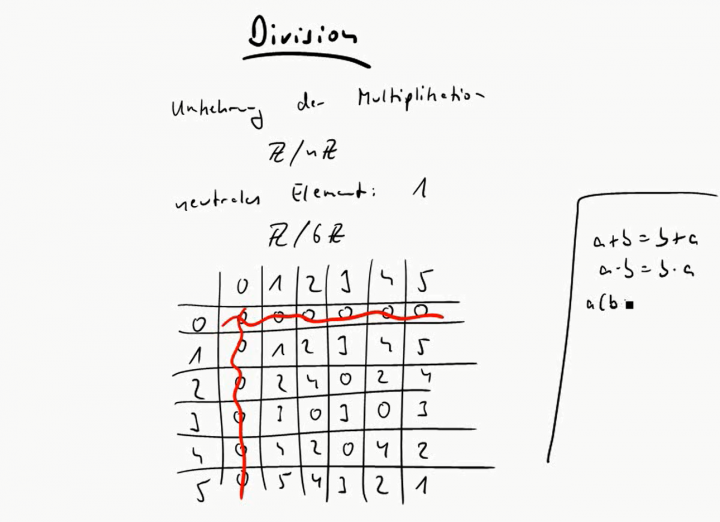 Division
Umkehrung der Multiplikation
ℤ/nℤ
neutrales Element: 1
ℤ/6ℤ
0 1 2 3 4 5
0 0 0 0 0 0 0
1 0 1 2 3 4 5
2 0 2 4 0 2 4
3 0 3 0 3 0 3
4 0 4 2 0 4 2
5 0 5 4 3 2 1
a+b=b+a
a·b=b·a
a(b